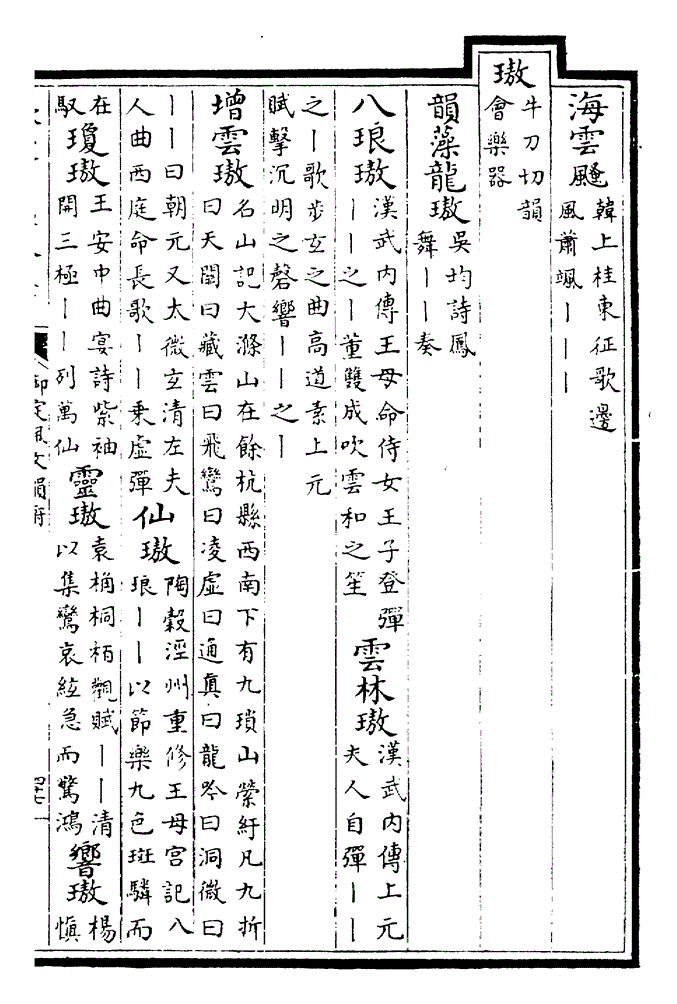 海雲颼韓上桂東征歌邊
風蕭颯丨丨丨
璈牛刀切韻
會樂器
韻藻龍璈吳均詩鳳
舞丨丨奏
八琅璈漢武內傳王母命侍女王子登彈
丨丨之丨董雙成吹雲和之笙
雲林璈漢武內傳上元
夫人自彈丨丨
之丨歌步玄之曲高道素上元
賦擊沉明之磬響丨丨之丨
增雲璈名山記大滌山在餘杭縣西南下有九瑣山縈紆凡九折
曰天關曰藏雲曰飛鸞曰凌虛曰通真曰龍吟曰洞微曰
丨丨曰朝元又太微玄清左夫
人曲西庭命長歌丨丨乘虛彈
仙璈陶穀涇州重修王母宮記八
琅丨丨以節樂九色斑驎而
在
馭
瓊璈王安中曲宴詩紫袖
開三極丨丨列萬仙
靈璈袁桷桐栢觀賦丨丨清
以集鸞哀絃急而驚鴻
響璈楊
愼
御定佩文韻府